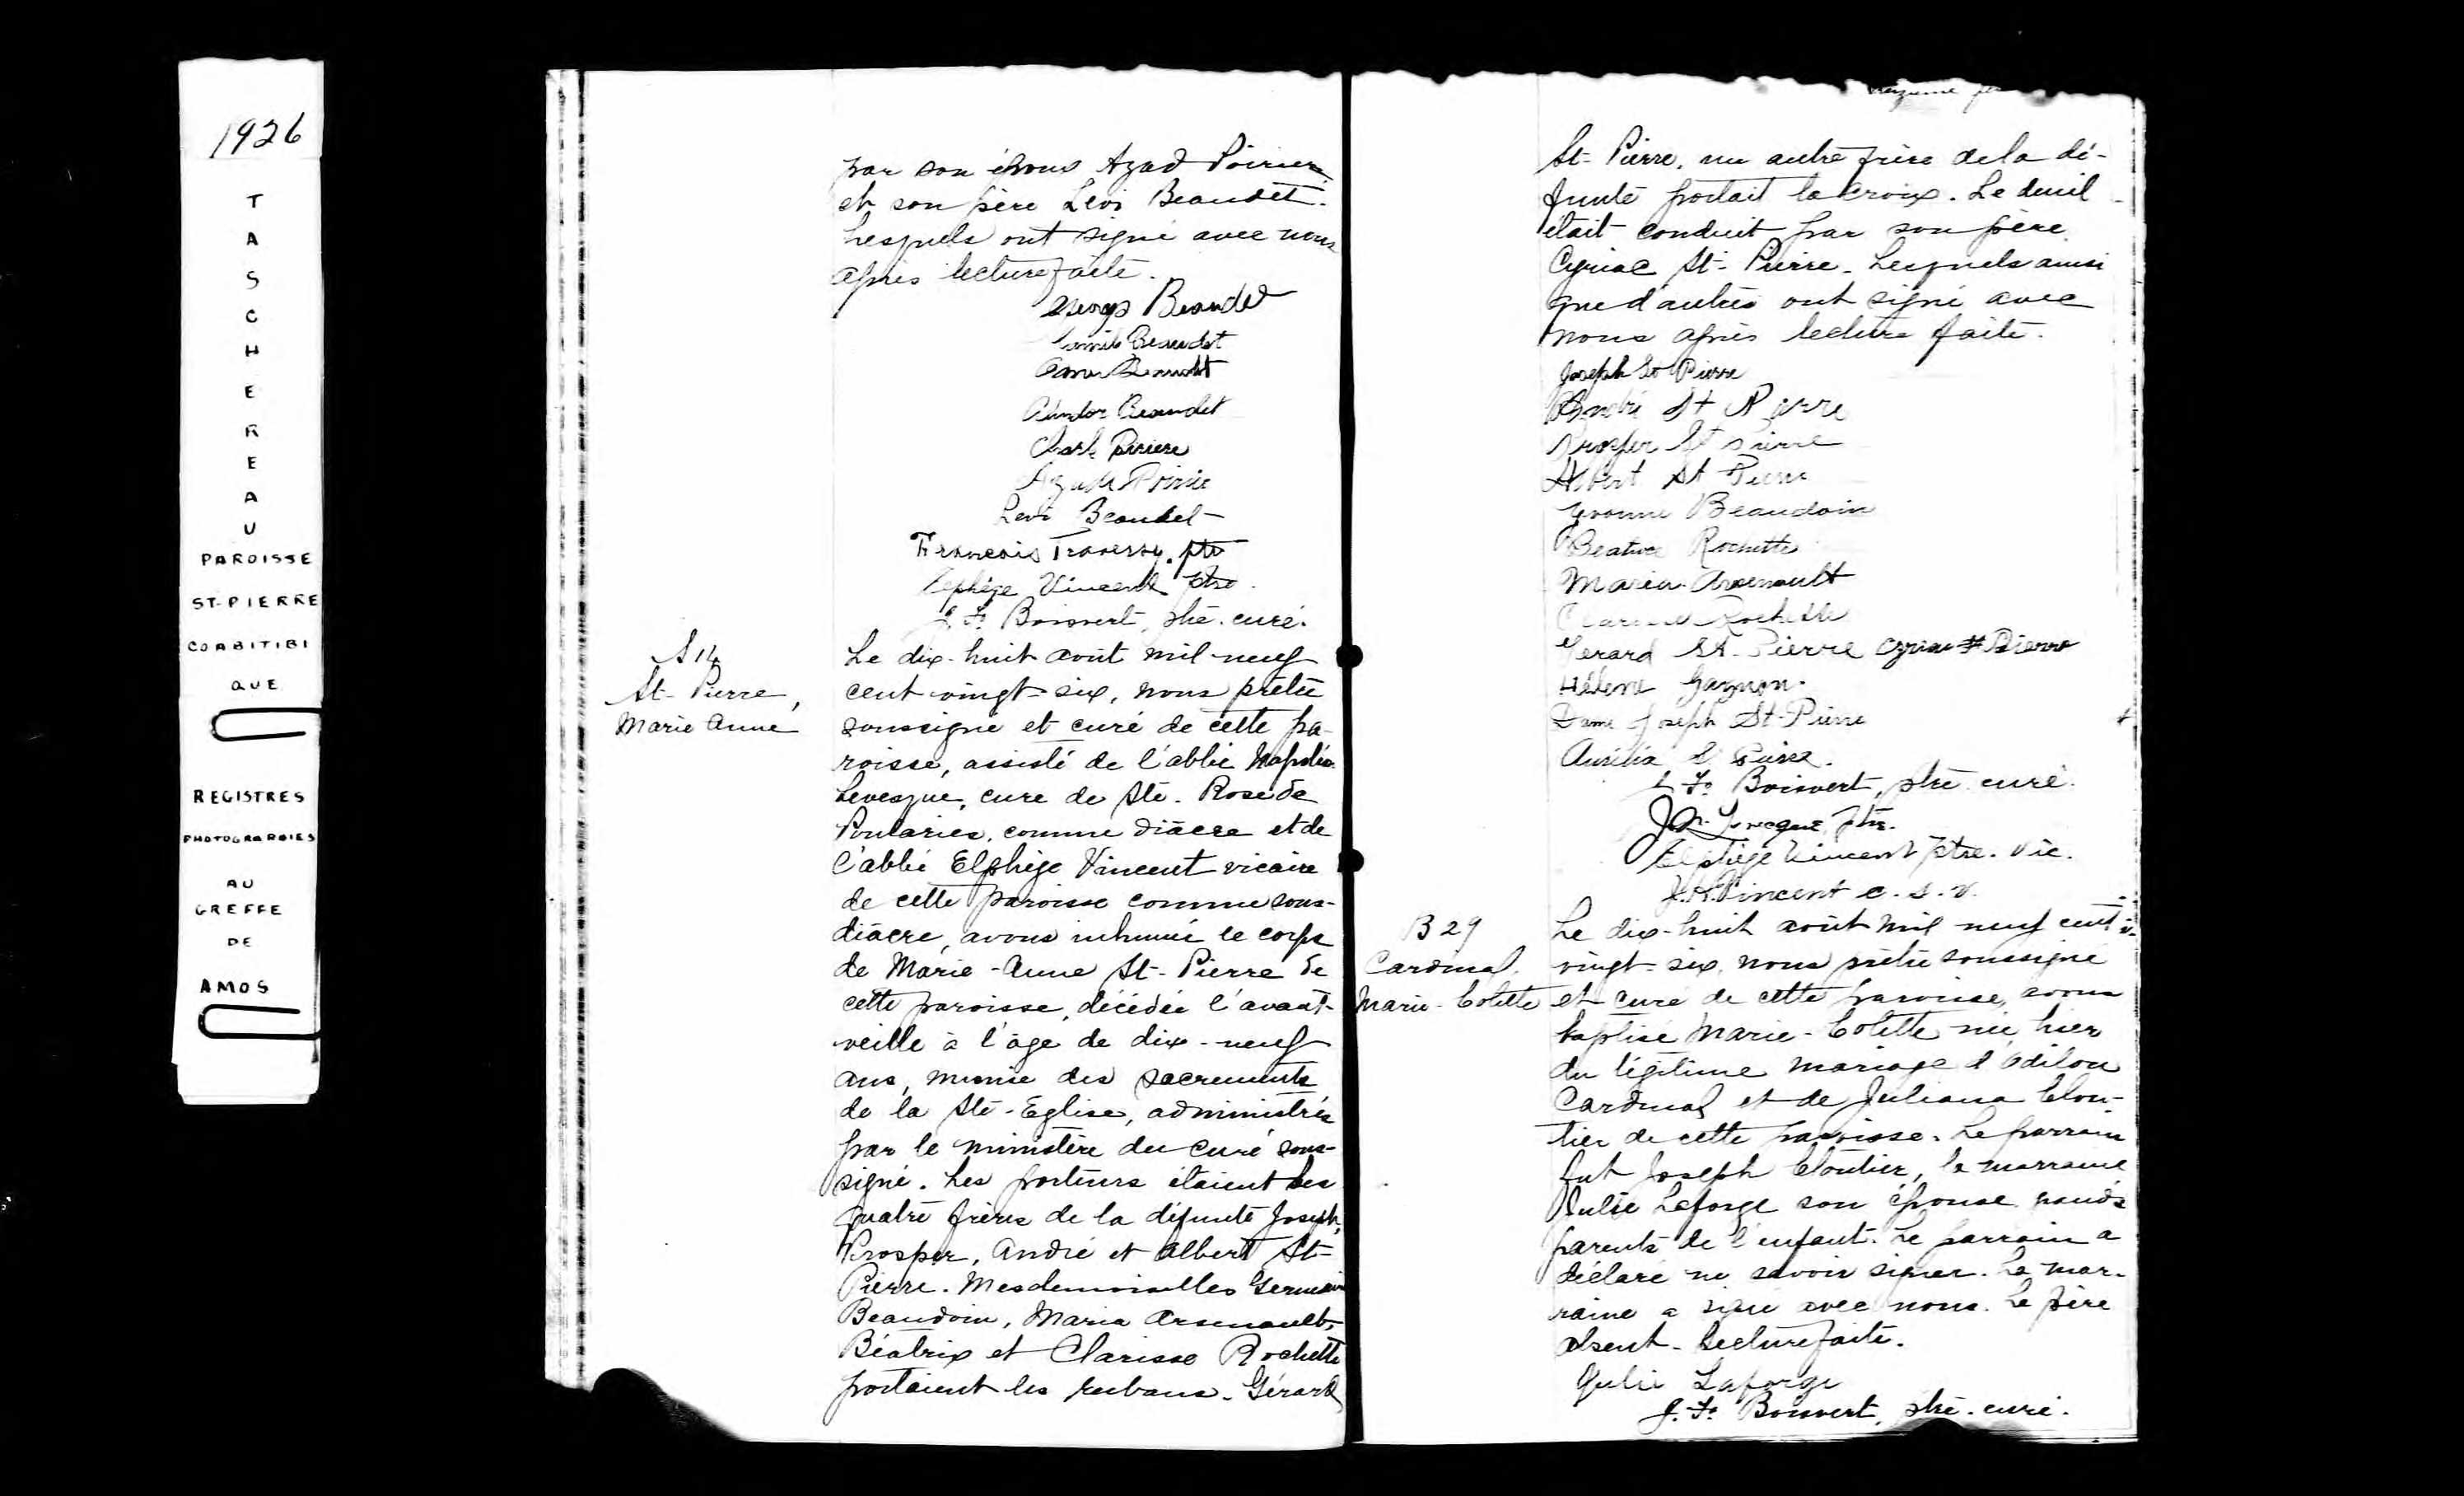 1926
T
A
S
C
H
E
R
E
A
U
PAROISSE
ST-PIERRE
COABITIBI
QUE
REGISTRES
PHOTOGRAPHIES
AU
GREFFE
DE
AMOS
par son époux Azad Poirier
et son père Lévi Beaudet.
Lesquels ont signé avec nous
après lecture faite.
Beaudet
Emile Beaudet
Beaudet
Beaudet
Poirier
Poirier
Levi Beaudet
François Traversy. ptre
Elphège Vincent ptre.
J. F. Boisvert, ptre. curé.
S 14
St-Pierre,
Marie Anne
Le dix-huit août mil-neuf
cent-vingt-six, nous prêtre
soussigné et curé de cette pa-
roisse, assisté de l'abbé Napoléon
Levesque, cure de Ste. Rose de
Poularies, comme diacre et de
l'abbé Elphège Vincent vicaire
de cette paroisse comme sous-
diacre, avons inhumé le corps
de Marie-Anne St-Pierre de
cette paroisse, décédée l'avant-
veille à l'âge de dix-neuf
ans, munie des sacrements
de la Ste-Eglise, administrés
par le ministère du curé sous-
signé. Les porteurs étaient les
quatre frères de la défunte Joseph,
Prosper, André et Albert St-
Pierre. Mesdemoiselles Germaine
Beaudoin, Maria Arsenault,
Béatrix et Clarisse Rochette
portaient les rubans. Gérard
St-Pierre, un autre frère de la dé-
funte portait la croix. Le deuil
était conduit par son père
Cyriac St-Pierre. Lesquels ainsi
que d'autres ont signé avec
nous après lecture faite.
Joseph St Pierre
André St Pierre
Prosper St Pierre
Albert St Pierre
Yvonne Beaudoin
Béatrice Rochette
Maria Arsenault
Rochette
Gerard St-Pierre Cyriac St Pierre
Hélène Gagnon.
Dame Joseph St-Pierre
Aurélia St Pierre.
J. F. Boisvert, ptre. curé.
J. N. Levesque, ptre.
Elphège Vincent ptre. vic.
Vincent c. s. v.
B 29
Cardinal,
Marie-Colette
Le dix-huit août mil neuf cent
vingt-six, nous prêtre soussigné
et curé de cette paroisse, avons
baptisé Marie-Colette née hier
du légitime mariage d'Odilon
Cardinal et de Juliana Clou-
tier de cette paroisse. Le parrain
fut Joseph Cloutier, la marraine
Julie Laforge son épouse grands
parents de l'enfant. Le parrain a
déclaré ne savoir signer. La mar-
raine a signé avec nous. Le père
absent. Lecture faite.
Julie Laforge
J. F. Boisvert, ptre. curé.